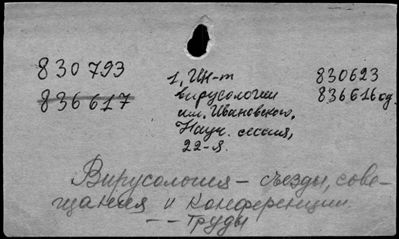 830793
836617
1, Ин-т
вирусологии
им. Ивановского.
Науч. сессия,
22-я.
830623
836616 од.
Вирусология – съезды, сове-
щания и конференции
– – Труды